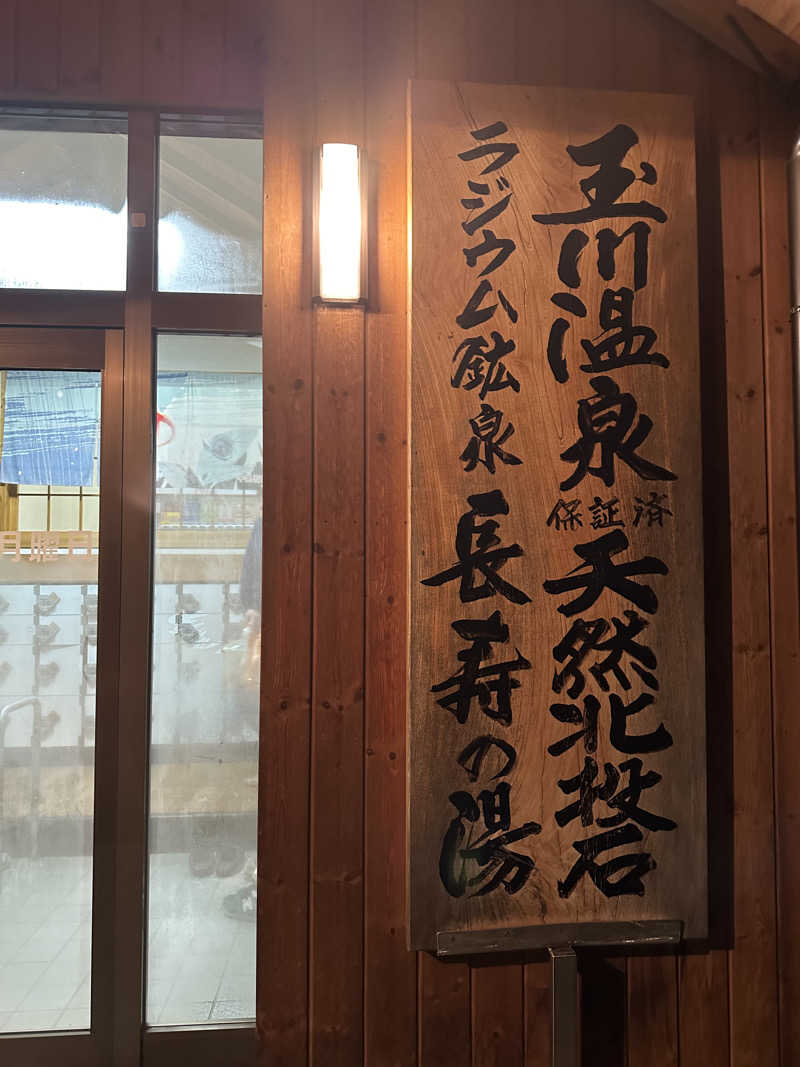 玉川温泉
保証済
天然北投石
ラジウム鉱泉
長寿の湯
月曜日